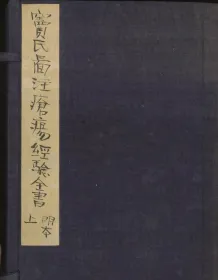 竇氏啚注瘡瘍經驗全書
明本
上